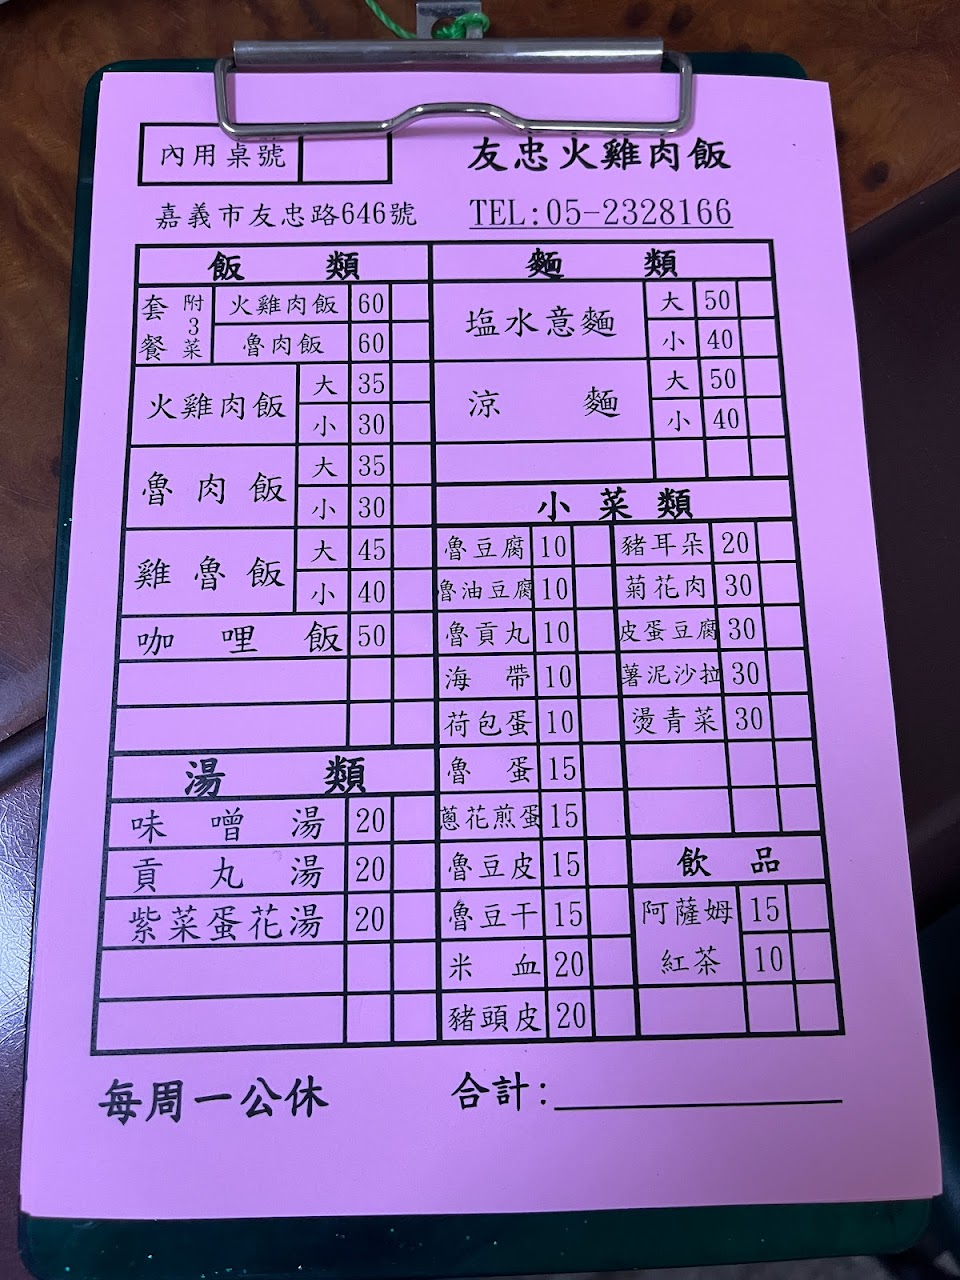 內用桌號
友忠火雞肉飯
嘉義市友忠路646號
TEL:05-2328166
飯 類
套餐 附3菜
火雞肉飯 60
魯肉飯 60
火雞肉飯 大 35
小 30
魯肉飯 大 35
小 30
雞魯飯 大 45
小 40
咖哩飯 50
湯 類
味噌湯 20
貢丸湯 20
紫菜蛋花湯 20
麵 類
塩水意麵 大 50
小 40
涼麵 大 50
小 40
小菜類
魯豆腐 10
魯油豆腐 10
魯貢丸 10
海帶 10
荷包蛋 10
魯蛋 15
蔥花煎蛋 15
魯豆皮 15
魯豆干 15
米血 20
豬頭皮 20
豬耳朵 20
菊花肉 30
皮蛋豆腐 30
薯泥沙拉 30
燙青菜 30
飲品
阿薩姆 15
紅茶 10
每周一公休
合計: